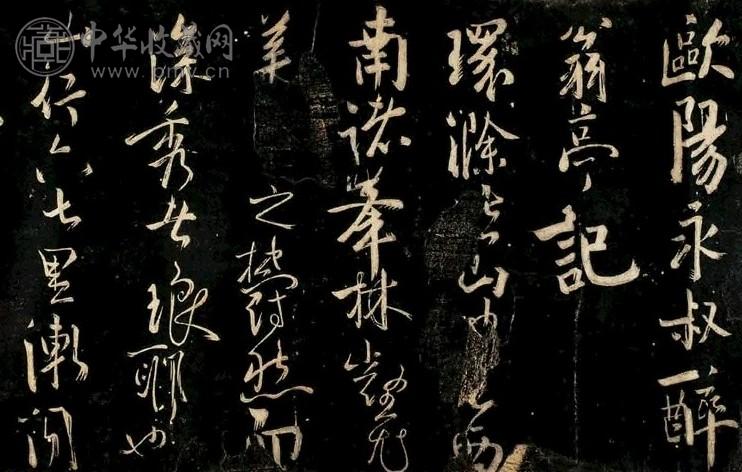 歐陽永叔醉
翁亭記
環滁皆山也其西
南諸峯林壑尤
美之蔚然而
深秀者琅耶也
山行六七里漸聞
中华收藏网